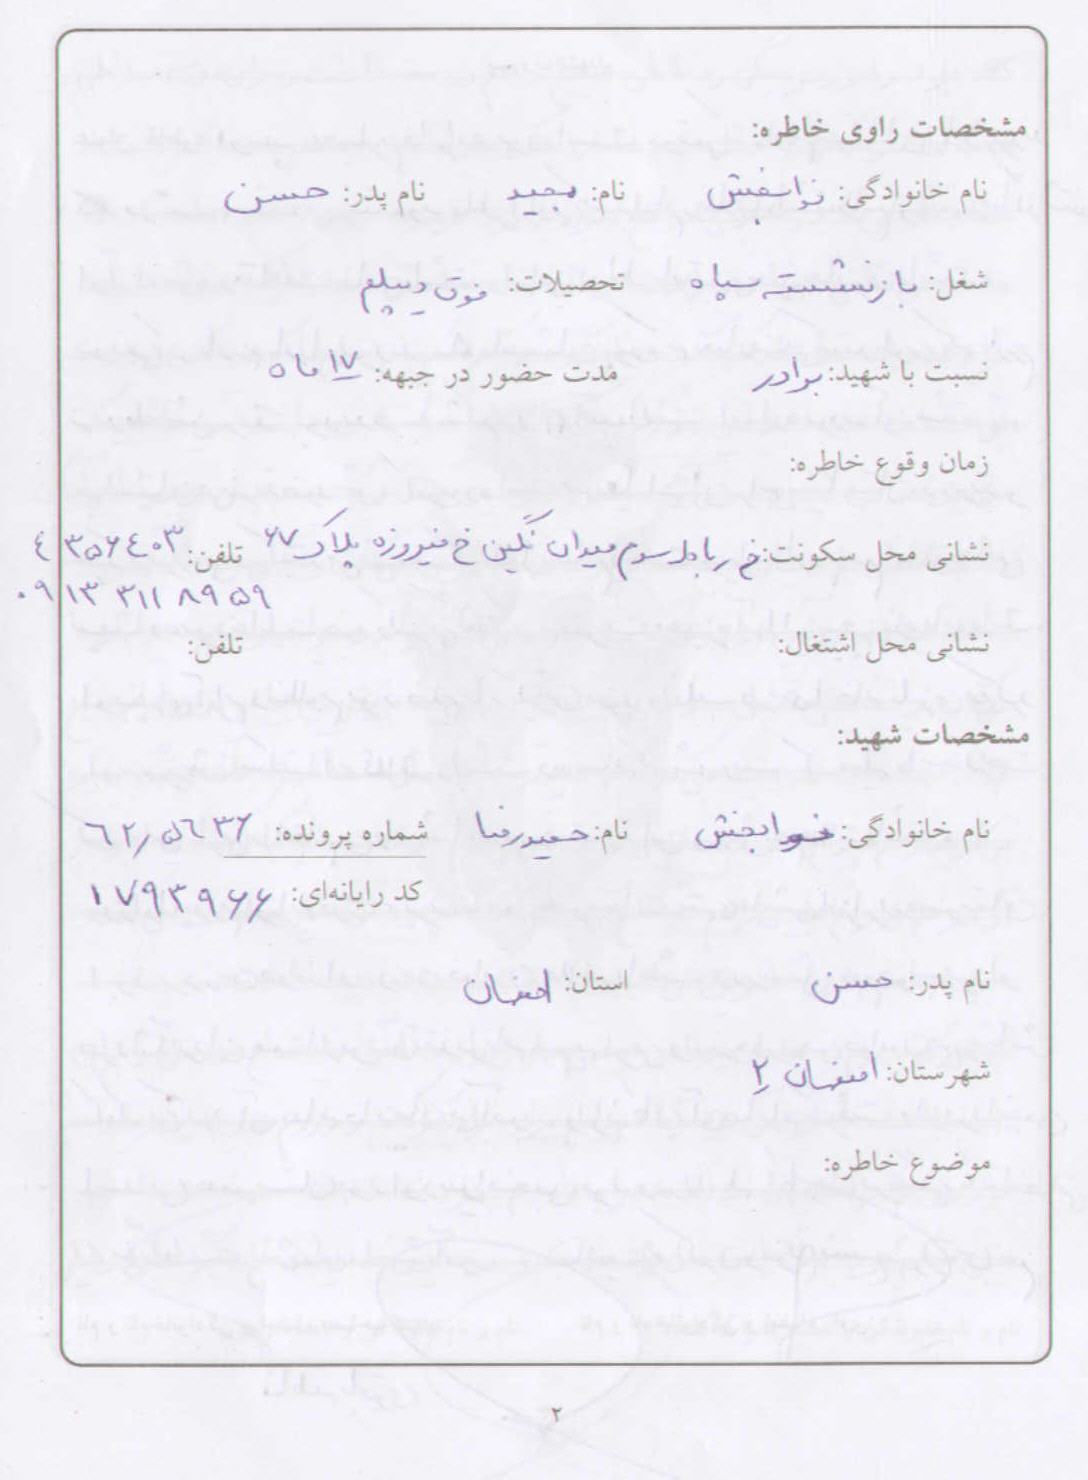 مشخصات راوی خاطره:
نام خانوادگی: نوابخش نام: مجید نام پدر: حسن
شغل: بازنشسته سپاه تحصیلات: فوق دیپلم
نسبت با شهید: برادر مدت حضور در جبهه: ۱۷ ماه
زمان وقوع خاطره:
نشانی محل سکونت: خ رباط سوم میدان نگین خ فیروزه پلاک ۶۷ تلفن: ۴۳۵۶۴۰۳
۰۹۱۳۳۱۱۸۹۵۹
نشانی محل اشتغال: تلفن:
مشخصات شهید:
نام خانوادگی: نوابخش نام: حمیدرضا شماره پرونده:
کد رایانه‌ای: ۱۷۹۳۹۶۶
نام پدر: حسن استان: اصفهان
شهرستان: اصفهان ۲
موضوع خاطره:
۲